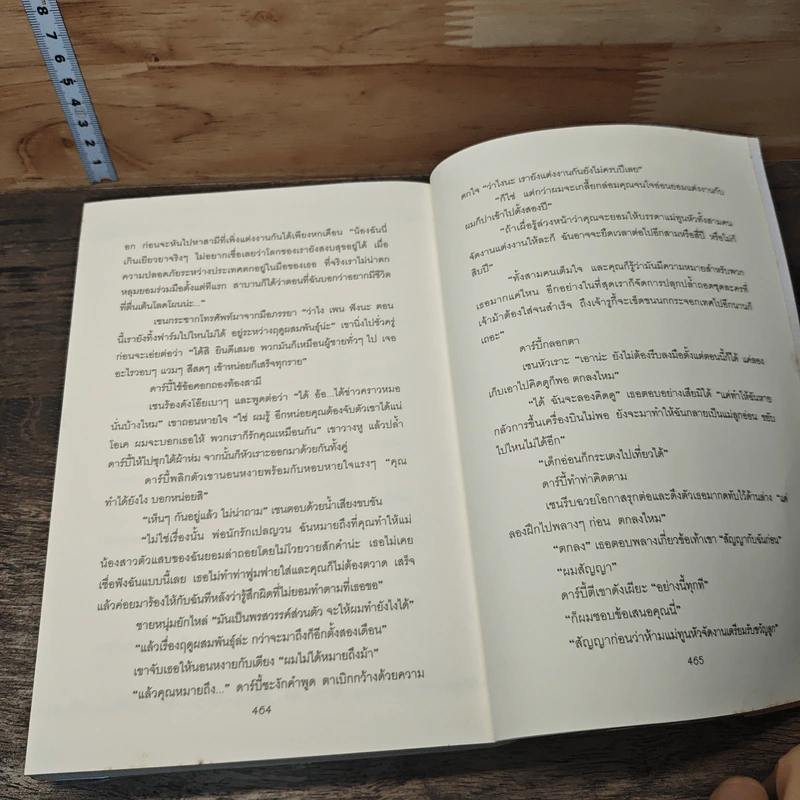 8
7
6
5
4
3
2
1
อก ก่อนจะหันไปหาสามีที่เพิ่งแต่งงานกันได้เพียงหกเดือน “น้องฉันนี่
เกินเยียวยาจริงๆ ไม่อยากเชื่อเลยว่าโลกของเรายังสงบสุขอยู่ได้ เมื่อ
ความปลอดภัยระหว่างประเทศตกอยู่ในมือของเธอ ที่จริงเราไม่น่าตก
หลุมยอมร่วมมือตั้งแต่ทีแรก สาบานก็ได้ว่าตอนที่ฉันบอกว่าอยากมีชีวิต
ที่ตื่นเต้นโลดโผนน่ะ...”
เซนกระชากโทรศัพท์มาจากมือภรรยา “ว่าไง เพน ฟังนะ ตอน
นี้เรายังทิ้งฟาร์มไปไหนไม่ได้ อยู่ระหว่างฤดูผสมพันธุ์น่ะ” เขานิ่งไปชั่วครู่
ก่อนจะเอ่ยต่อว่า “ได้สิ ยินดีเสมอ พวกมันก็เหมือนผู้ชายทั่วๆ ไป เจอ
อะไรวอบๆ แวมๆ สีสดๆ เข้าหน่อยก็เสร็จทุกราย”
ดาร์บี้ใช้ข้อศอกถองท้องสามี
เซนร้องดังโอ๊ยเบาๆ และพูดต่อว่า “ได้ อ้อ...ได้ข่าวคราวหมอ
นั่นบ้างไหม” เขาถอนหายใจ “ใช่ ผมรู้ อีกหน่อยคุณต้องจับตัวเขาได้แน่
โอเค ผมจะบอกเธอให้ พวกเราก็รักคุณเหมือนกัน” เขาวางหู แล้วปล้ำ
ดาร์บี้ให้ไปซุกใต้ผ้าห่ม จากนั้นก็หัวเราะออกมาด้วยกันทั้งคู่
ดาร์บี้พลิกตัวเขานอนหงายพร้อมกับหอบหายใจแรงๆ “คุณ
ทำได้ยังไง บอกหน่อยสิ”
“เห็นๆ กันอยู่แล้ว ไม่น่าถาม” เซนตอบด้วยน้ำเสียงขบขัน
“ไม่ใช่เรื่องนั้น พ่อนักรักเปลญวน ฉันหมายถึงที่คุณทำให้แม่
น้องสาวตัวแสบของฉันยอมล่าถอยโดยไม่โวยวายสักคำน่ะ เธอไม่เคย
เชื่อฟังฉันแบบนี้เลย เธอไม่ทำท่าฟูมฟายใส่และคุณก็ไม่ต้องตวาด เสร็จ
แล้วค่อยมาร้องไห้กับฉันทีหลังว่ารู้สึกผิดที่ไม่ยอมทำตามที่เธอขอ”
ชายหนุ่มยักไหล่ “มันเป็นพรสวรรค์ส่วนตัว จะให้ผมทำยังไงได้”
“แล้วเรื่องฤดูผสมพันธุ์ล่ะ กว่าจะมาถึงก็อีกตั้งสองเดือน”
เขาจับเธอให้นอนหงายกับเตียง “ผมไม่ได้หมายถึงม้า”
“แล้วคุณหมายถึง...” ดาร์บี้ชะงักคำพูด ตาเบิกกว้างด้วยความ
464
ตกใจ “ว่าไงนะ เรายังแต่งงานกันยังไม่ครบปีเลย”
“ก็ใช่ แต่กว่าผมจะเกลี้ยกล่อมคุณจนใจอ่อนยอมแต่งงานกับ
ผมก็ปาเข้าไปตั้งสองปี”
“ถ้าเผื่อรู้ล่วงหน้าว่าคุณจะยอมให้บรรดาแม่ทูนหัวทั้งสามคน
จัดงานแต่งงานให้ละก็ ฉันอาจจะยืดเวลาต่อไปอีกสามหรือสี่ปี หรือไม่ก็
สิบปี”
“ทั้งสามคนเต็มใจ และคุณก็รู้ว่ามันมีความหมายสำหรับพวก
เธอมากแค่ไหน อีกอย่างในที่สุดเราก็จัดการปลุกปล้ำถอดชุดละครที่
เจ้าม้าต้องใส่จนสำเร็จ ถึงเจ้ารู้กี้จะเข็ดขนนกกระจอกเทศไปอีกนานก็
เถอะ”
ดาร์บี้กลอกตา
เซนหัวเราะ “เอาน่ะ ยังไม่ต้องรีบลงมือตั้งแต่ตอนนี้ก็ได้ แค่ลอง
เก็บเอาไปคิดดูก็พอ ตกลงไหม”
“ได้ ฉันจะลองคิดดู” เธอตอบอย่างเสียมิได้ “แค่ทำให้ฉันหาย
กลัวการขึ้นเครื่องบินไม่พอ ยังจะมาทำให้ฉันกลายเป็นแม่ลูกอ่อน ขยับ
ไปไหนไม่ได้อีก”
“เด็กอ่อนก็กระเตงไปเที่ยวได้”
ดาร์บี้ทำท่าคิดตาม
เซนรีบฉวยโอกาสรุกต่อและดึงตัวเธอมากดทับไว้ด้านล่าง “แค่
ลองฝึกไปพลางๆ ก่อน ตกลงไหม”
“ตกลง” เธอตอบพลางเกี่ยวข้อเท้าเขา “สัญญากับฉันก่อน”
“ผมสัญญา”
ดาร์บี้ตีเขาดังเผียะ “อย่างนี้ทุกที”
“ก็ผมชอบข้อเสนอคุณนี่”
“สัญญาก่อนว่าห้ามแม่ทูนหัวจัดงานเตรียมรับขวัญลูก”
465